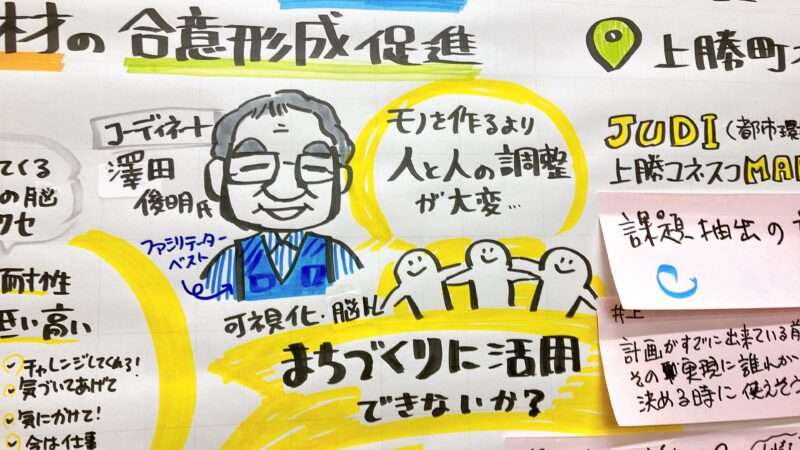 材の合意形成促進
上勝町
コーディネート
澤田
俊明氏
ファシリテーター
ベスト
モノを作るより
人と人の調整
が大変…
JUDI(都市環
上勝コネスコMA
課題抽出の
てくる
の脳
クセ
耐性
低い高い
チャレンジしてくれる!
気づいてあげて
気にかけて!
今は仕事
可視化・脳トレ
まちづくりに活用
できないか?
#上
計画がすでに出来ている前
その実現に誰か
決める時に使えそう